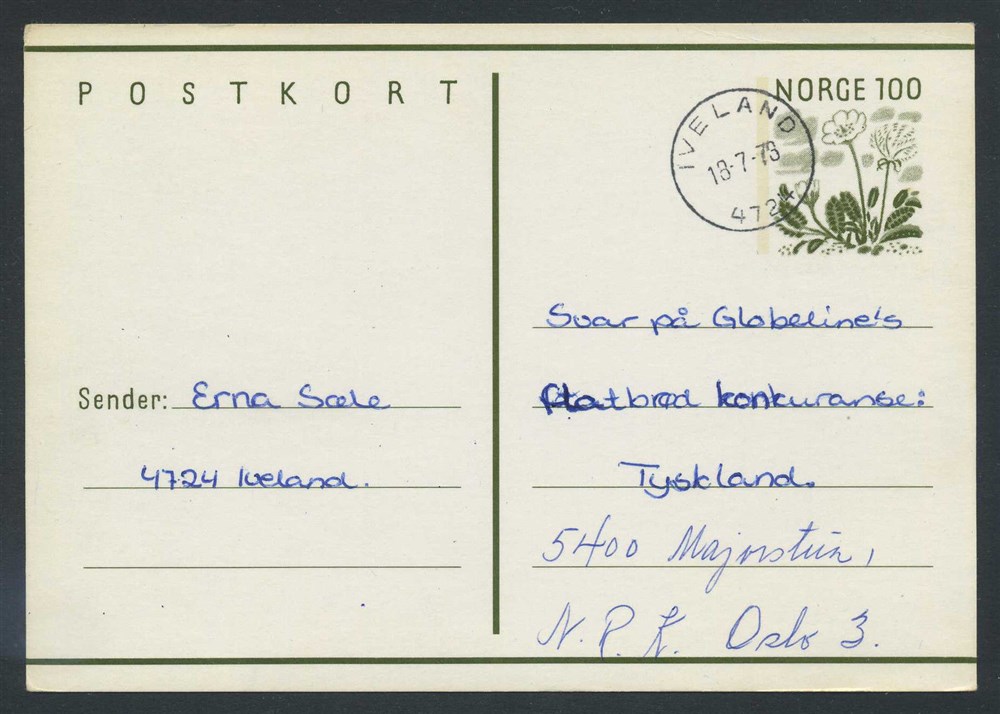 POSTKORT
NORGE 100
IVELAND
18-7-78
4724
Svar på Globeline's
flatbrød konkuranse:
Tyskland.
5400 Majorstua,
N.P.K. Oslo 3.
Sender: Erna Sæle
4724 Iveland.